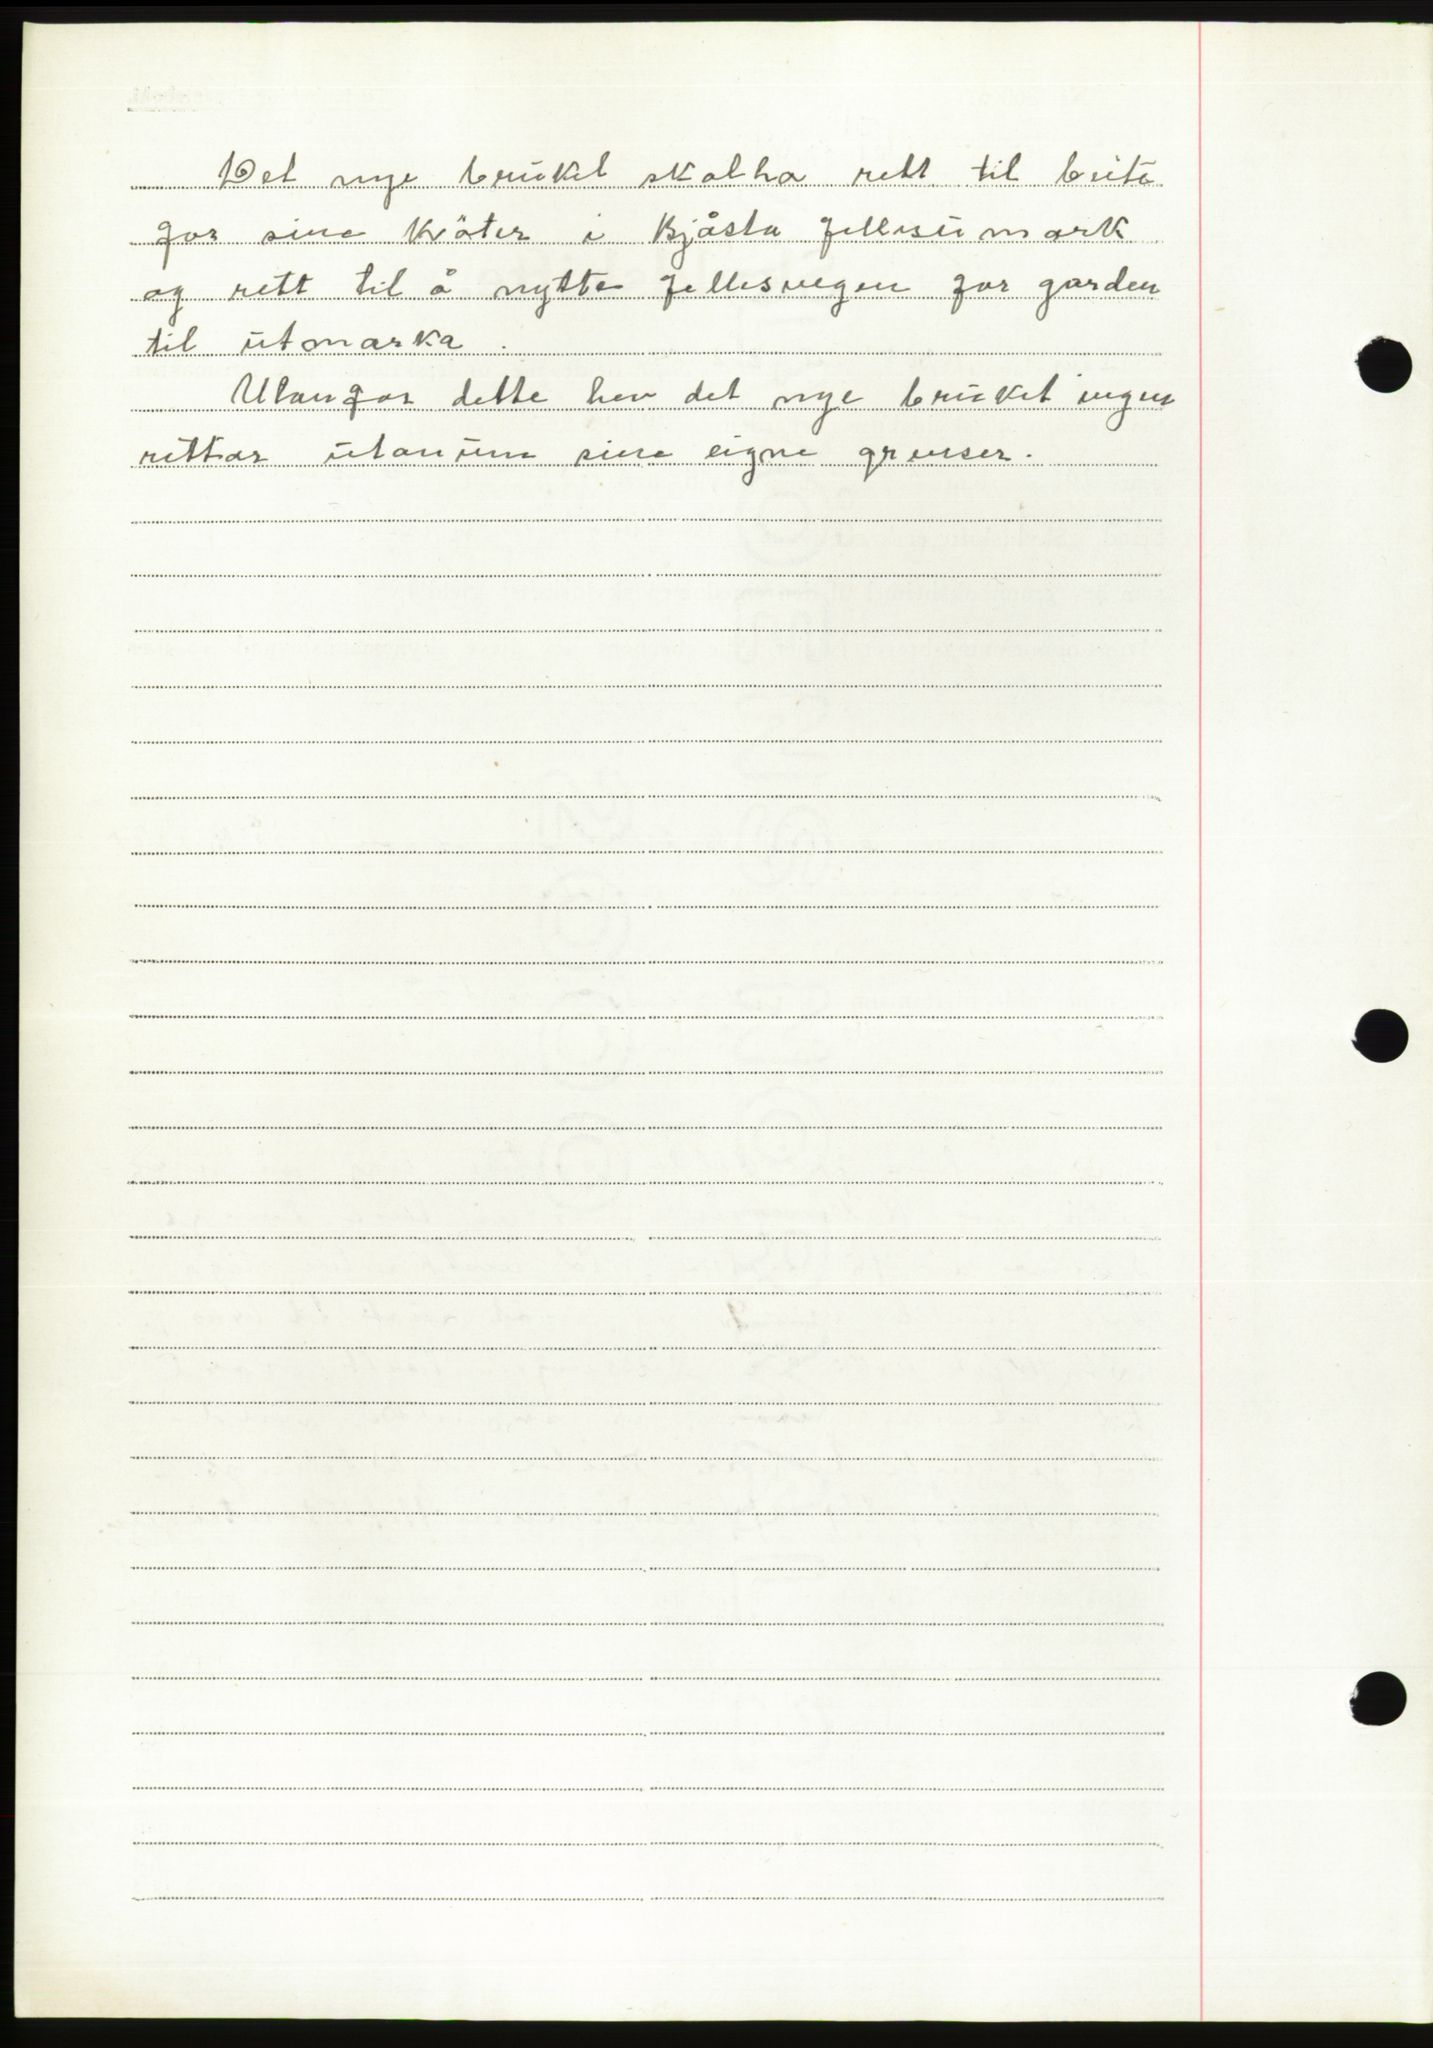 Det nye bruket skal ha rett til beite
for sine kröter i Kjåsta fellesumark
og rett til å nytte fellesvegen for garden
til utmarka.
Utanfor dette hev det nye bruket ingen
rettar utanum sine eigne grenser.